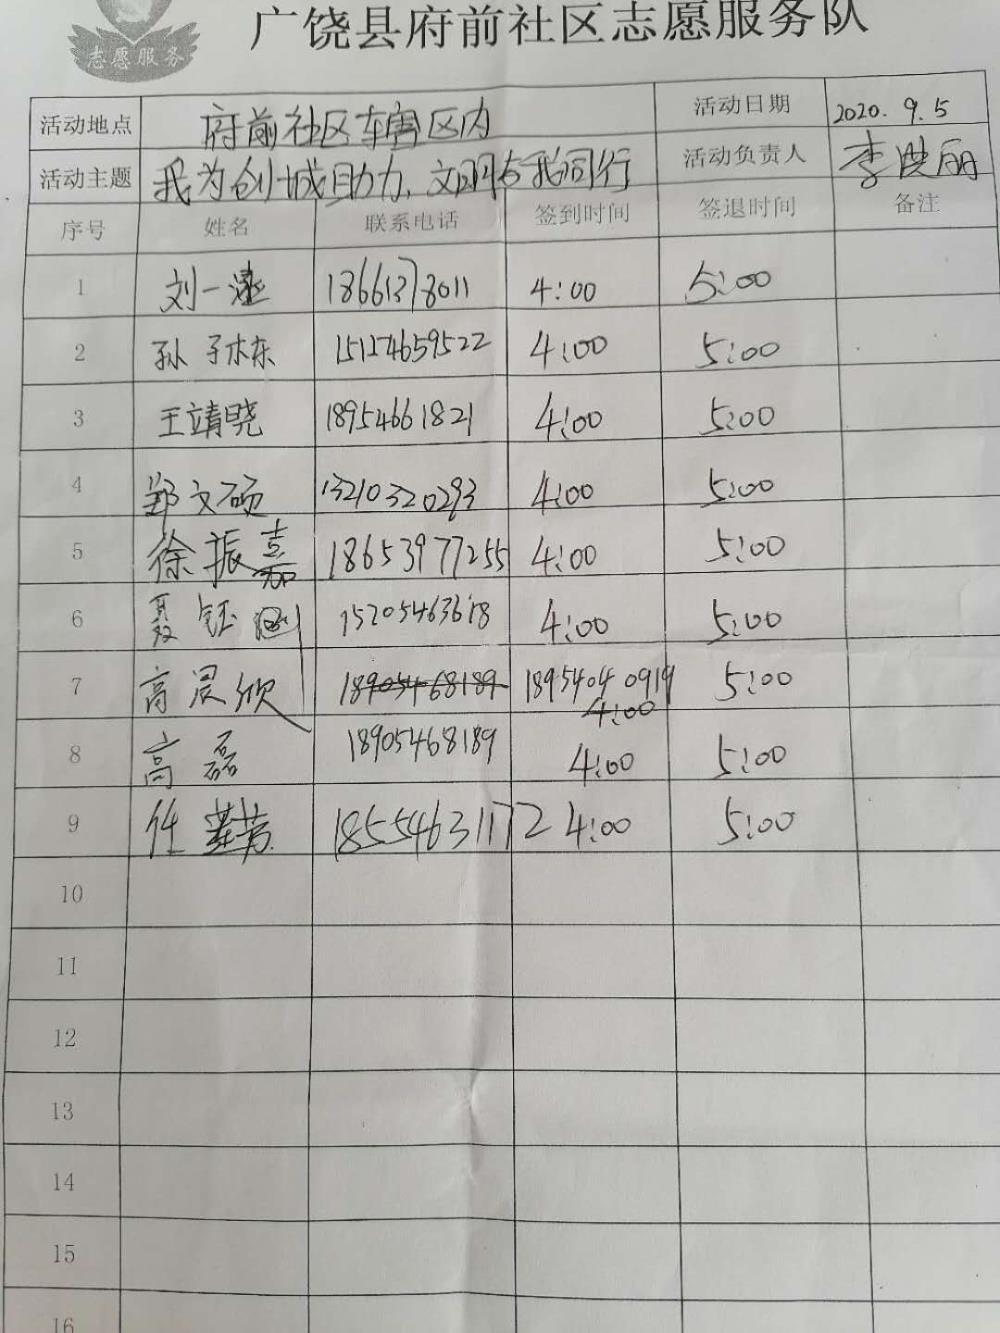 广饶县府前社区志愿服务队
志愿服务
活动地点 府前社区辖区内 活动日期 2020.9.5
活动主题 我为创城助力,文明与我同行 活动负责人 李洪丽
序号 姓名 联系电话 签到时间 签退时间 备注
1 刘一 18661378011 4:00 5:00
2 孙子栋 15154659522 4:00 5:00
3 王靖晓 18954661821 4:00 5:00
4 郑文硕 13210320293 4:00 5:00
5 徐振嘉 18653977255 4:00 5:00
6 聂钰涵 15205463618 4:00 5:00
7 高晨欣 18905468189 18954040919 4:00 5:00
8 高磊 18905468189 4:00 5:00
9 任 18554631172 4:00 5:00
10
11
12
13
14
15
16